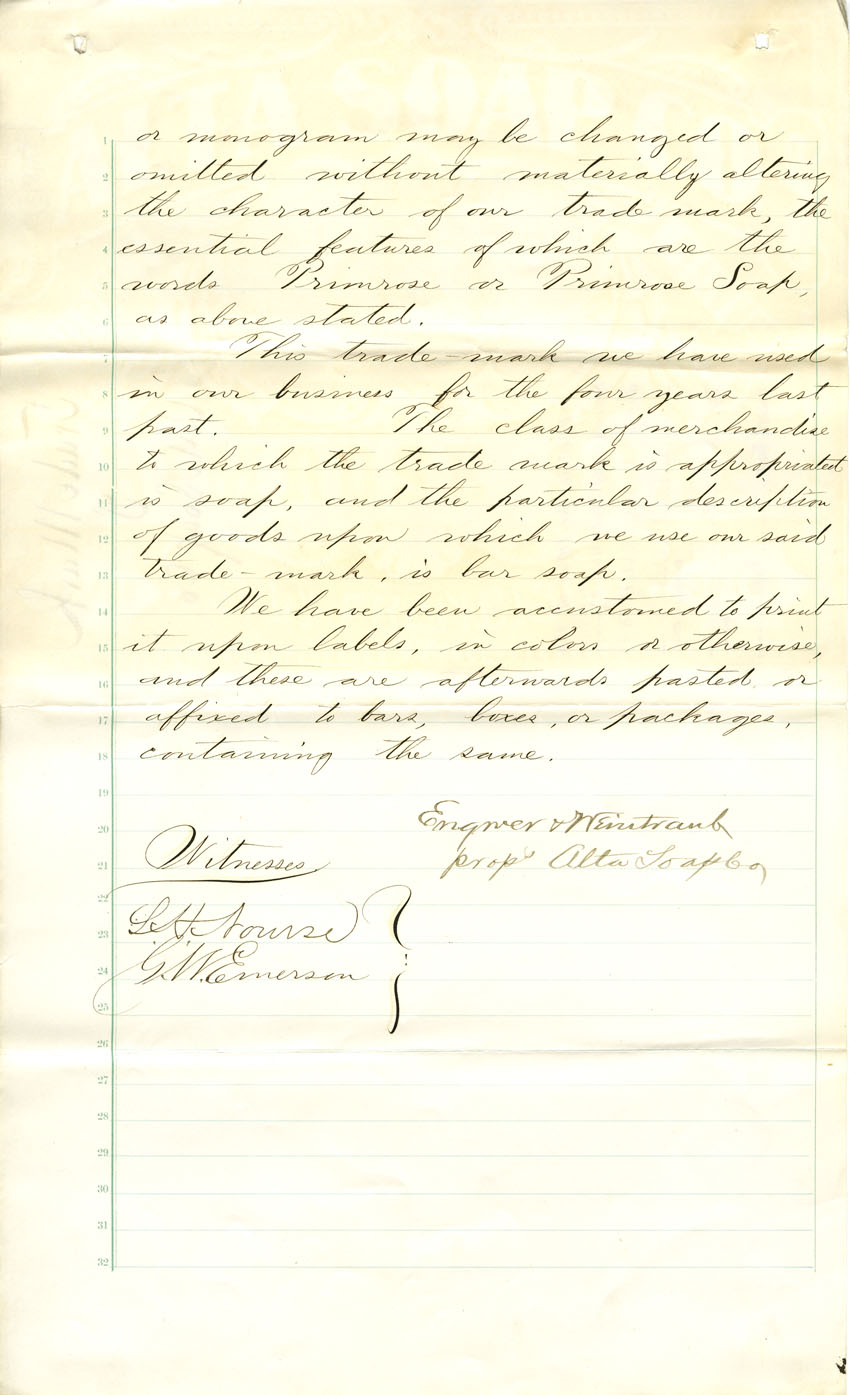 1 or monogram may be changed or
2 omitted without materially altering
3 the character of our trade mark, the
4 essential features of which are the
5 words Primrose or Primrose Soap,
6 as above stated.
7 This trade-mark we have used
8 in our business for the four years last
9 past. The class of merchandise
10 to which the trade mark is appropriated
11 is soap, and the particular description
12 of goods upon which we use our said
13 trade-mark, is bar soap.
14 We have been accustomed to print
15 it upon labels, in colors or otherwise,
16 and these are afterwards pasted or
17 affixed to bars, boxes, or packages,
18 containing the same.
19
20 Engwer & Weintraub
21 Witnesses props Alta Soap Co
22
23 L. H. Nourse
24 G. W. Emerson
25
26
27
28
29
30
31
32